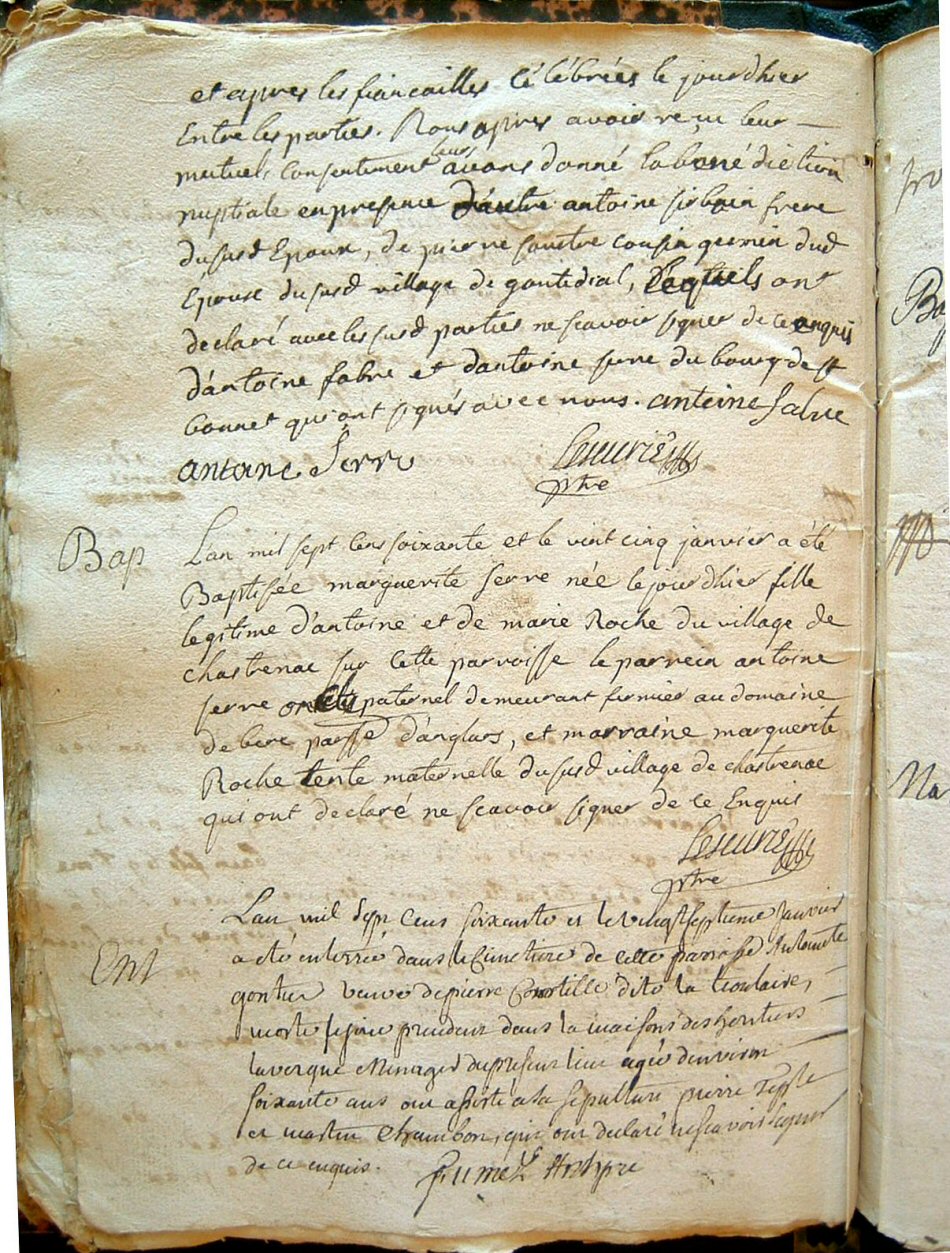 et apres les fiancailles célébrées le jourdhier
Entre les parties. Nous apres avoir reçu leur
mutuel consentement leurs avons donné la bénédiction
nuptiale en presence antoine sirbain frere
du susd Epoux, de pierre soustre cousin germain dud
Epouse du susd village de gontedial, lesquels ont
declaré avec les susd parties ne scavoir signer de ce enquis
d'antoine fabre et dantoine serre du bourg de st
bonnet qui ont signés avec nous. antoine fabre
antoine Serre Lescurie
ptre
Bap
Lan mil sept cens soixante et le vint cinq janvier a été
Baptisée marguerite serre née le jourdhier fille
legitime d'antoine et de marie Roche du village de
chastrenac sur cette parroisse le parrein antoine
serre oncle paternel demeurant fermier au domaine
de bere parsse d'anglars, et marraine marguerite
Roche tente maternelle du susd village de chastrenac
qui ont declaré ne scavoir signer de ce Enquis
Lescurie
ptre
Ent
Lan mil sept cens soixante et le vingt septieme Janvier
a été enterrée dans le Cimetiere de cette parroisse Antoinete
gontier veuve de pierre dite la
morte le jour precedent dans la maison des heritiers
laverque Menager du present lieu agée denviron
soixante ans ont assisté a sa sepulture pierre
et martin Chambon, qui ont declaré ne scavoir signer
de ce enquis.